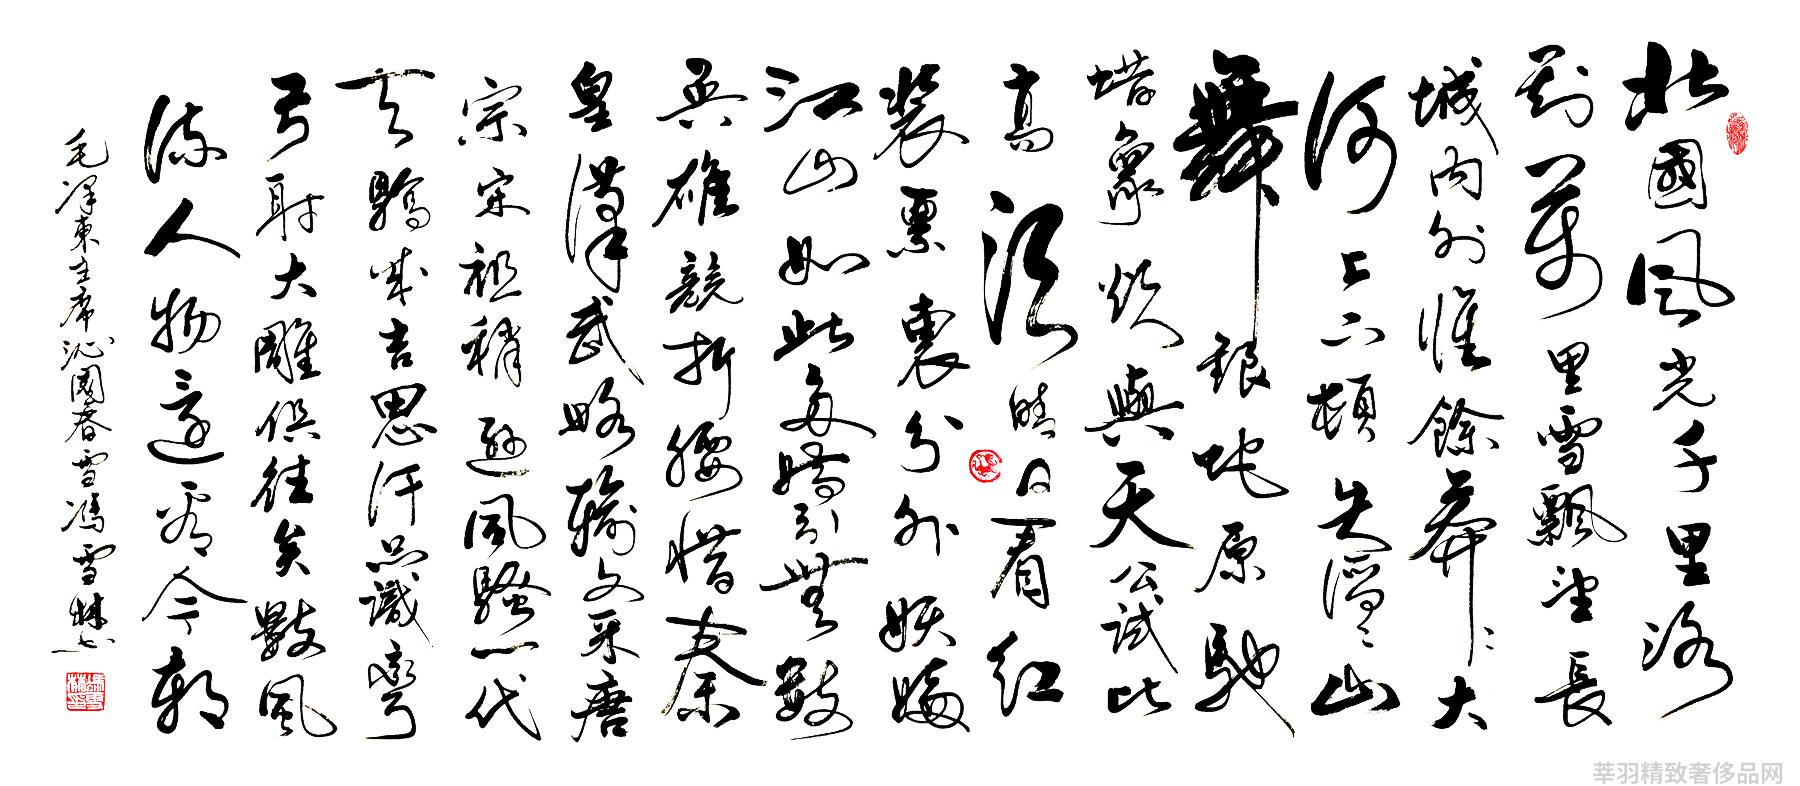 北國风光千里冰
封萬里雪飄望長
城内外惟餘莽〻大
河上下頓失滔〻山
舞銀蛇原馳
蜡象欲與天公試比
高須晴日看紅
裝素裹分外妖嬈
江山如此多嬌引無數
英雄競折腰惜秦
皇漢武略輸文采唐
宗宋祖稍遜風騷一代
天驕成吉思汗只識彎
弓射大雕俱往矣數風
流人物還看今朝
毛澤東主席沁園春雪馮雪林書
莘羽精致奢侈品网